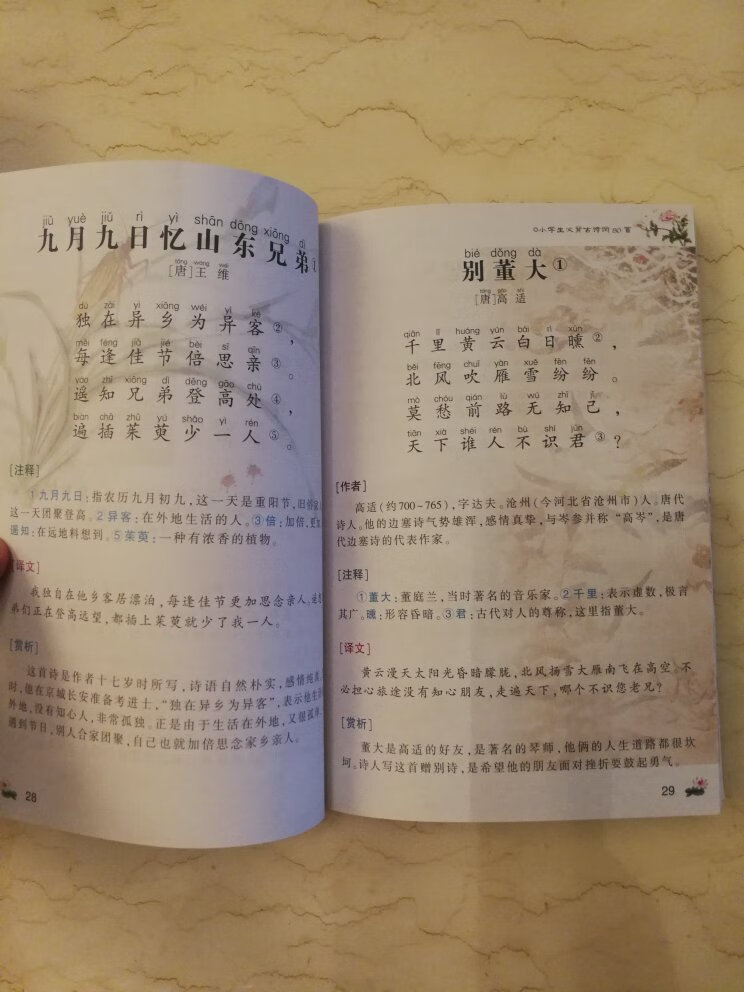 jiǔ yuè jiǔ rì yì shān dōng xiōng dì
九月九日忆山东兄弟①
táng wáng wéi
[唐]王 维
dú zài yì xiāng wéi yì kè
独在异乡为异客②，
měi féng jiā jié bèi sī qīn
每逢佳节倍思亲③。
yáo zhī xiōng dì dēng gāo chù
遥知兄弟登高处④，
biàn chā zhū yú shǎo yì rén
遍插茱萸少一人⑤。
[注释]
①九月九日：指农历九月初九，这一天是重阳节，旧俗
这一天团聚登高。②异客：在外地生活的人。③倍：加倍，更加
遥知：在远地料想到。⑤茱萸：一种有浓香的植物。
[译文]
我独自在他乡客居漂泊，每逢佳节更加思念亲人。
弟们正在登高远望，都插上茱萸就少了我一人。
[赏析]
这首诗是作者十七岁时所写，诗语自然朴实，感情纯真。
时，他在京城长安准备考进士，“独在异乡为异客”，表示他生活
外地，没有知心人，非常孤独。正是由于生活在外地，又很孤
遇到节日，别人合家团聚，自己也就加倍思念家乡亲人。
28
小学生必背古诗词80首
bié dǒng dà
别董大①
táng gāo shì
[唐]高适
qiān lǐ huáng yún bái rì xūn
千里黄云白日曛②，
běi fēng chuī yàn xuě fēn fēn
北风吹雁雪纷纷。
mò chóu qián lù wú zhī jǐ
莫愁前路无知己，
tiān xià shéi rén bù shí jūn
天下谁人不识君③？
[作者]
高适(约700～765)，字达夫。沧州(今河北省沧州市)人。唐代
诗人。他的边塞诗气势雄浑，感情真挚，与岑参并称“高岑”，是唐
代边塞诗的代表作家。
[注释]
①董大：董庭兰，当时著名的音乐家。②千里：表示虚数，极言
其广。曛：形容昏暗。③君：古代对人的尊称，这里指董大。
[译文]
黄云漫天太阳光昏暗朦胧，北风扬雪大雁南飞在高空。不
必担心旅途没有知心朋友，走遍天下，哪个不识您老兄？
[赏析]
董大是高适的好友，是著名的琴师，他俩的人生道路都很坎
坷。诗人写这首赠别诗，是希望他的朋友面对挫折要鼓起勇气。
29